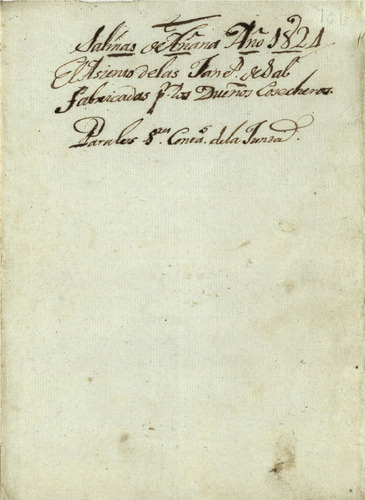 Salinas de Añana Año 1821
El Asiento de las Fan.s de Sal
Fabricadas p.r los Dueños Cosecheros.
Para los S.res Cont.s de la Junta